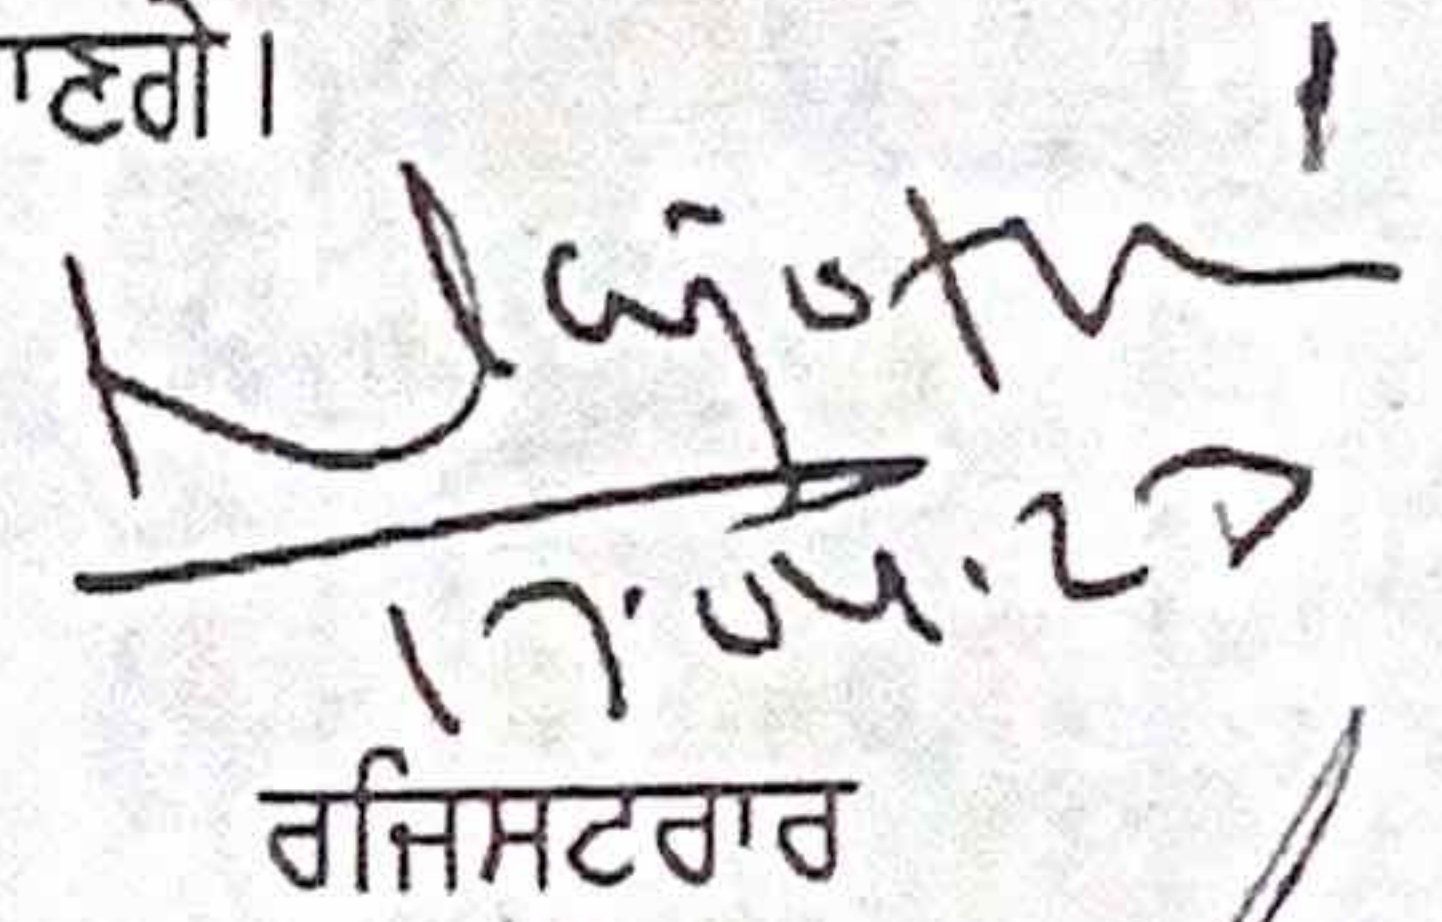 ਾਣਗੇ।
17.04.20
ਰਜਿਸਟਰਾਰ